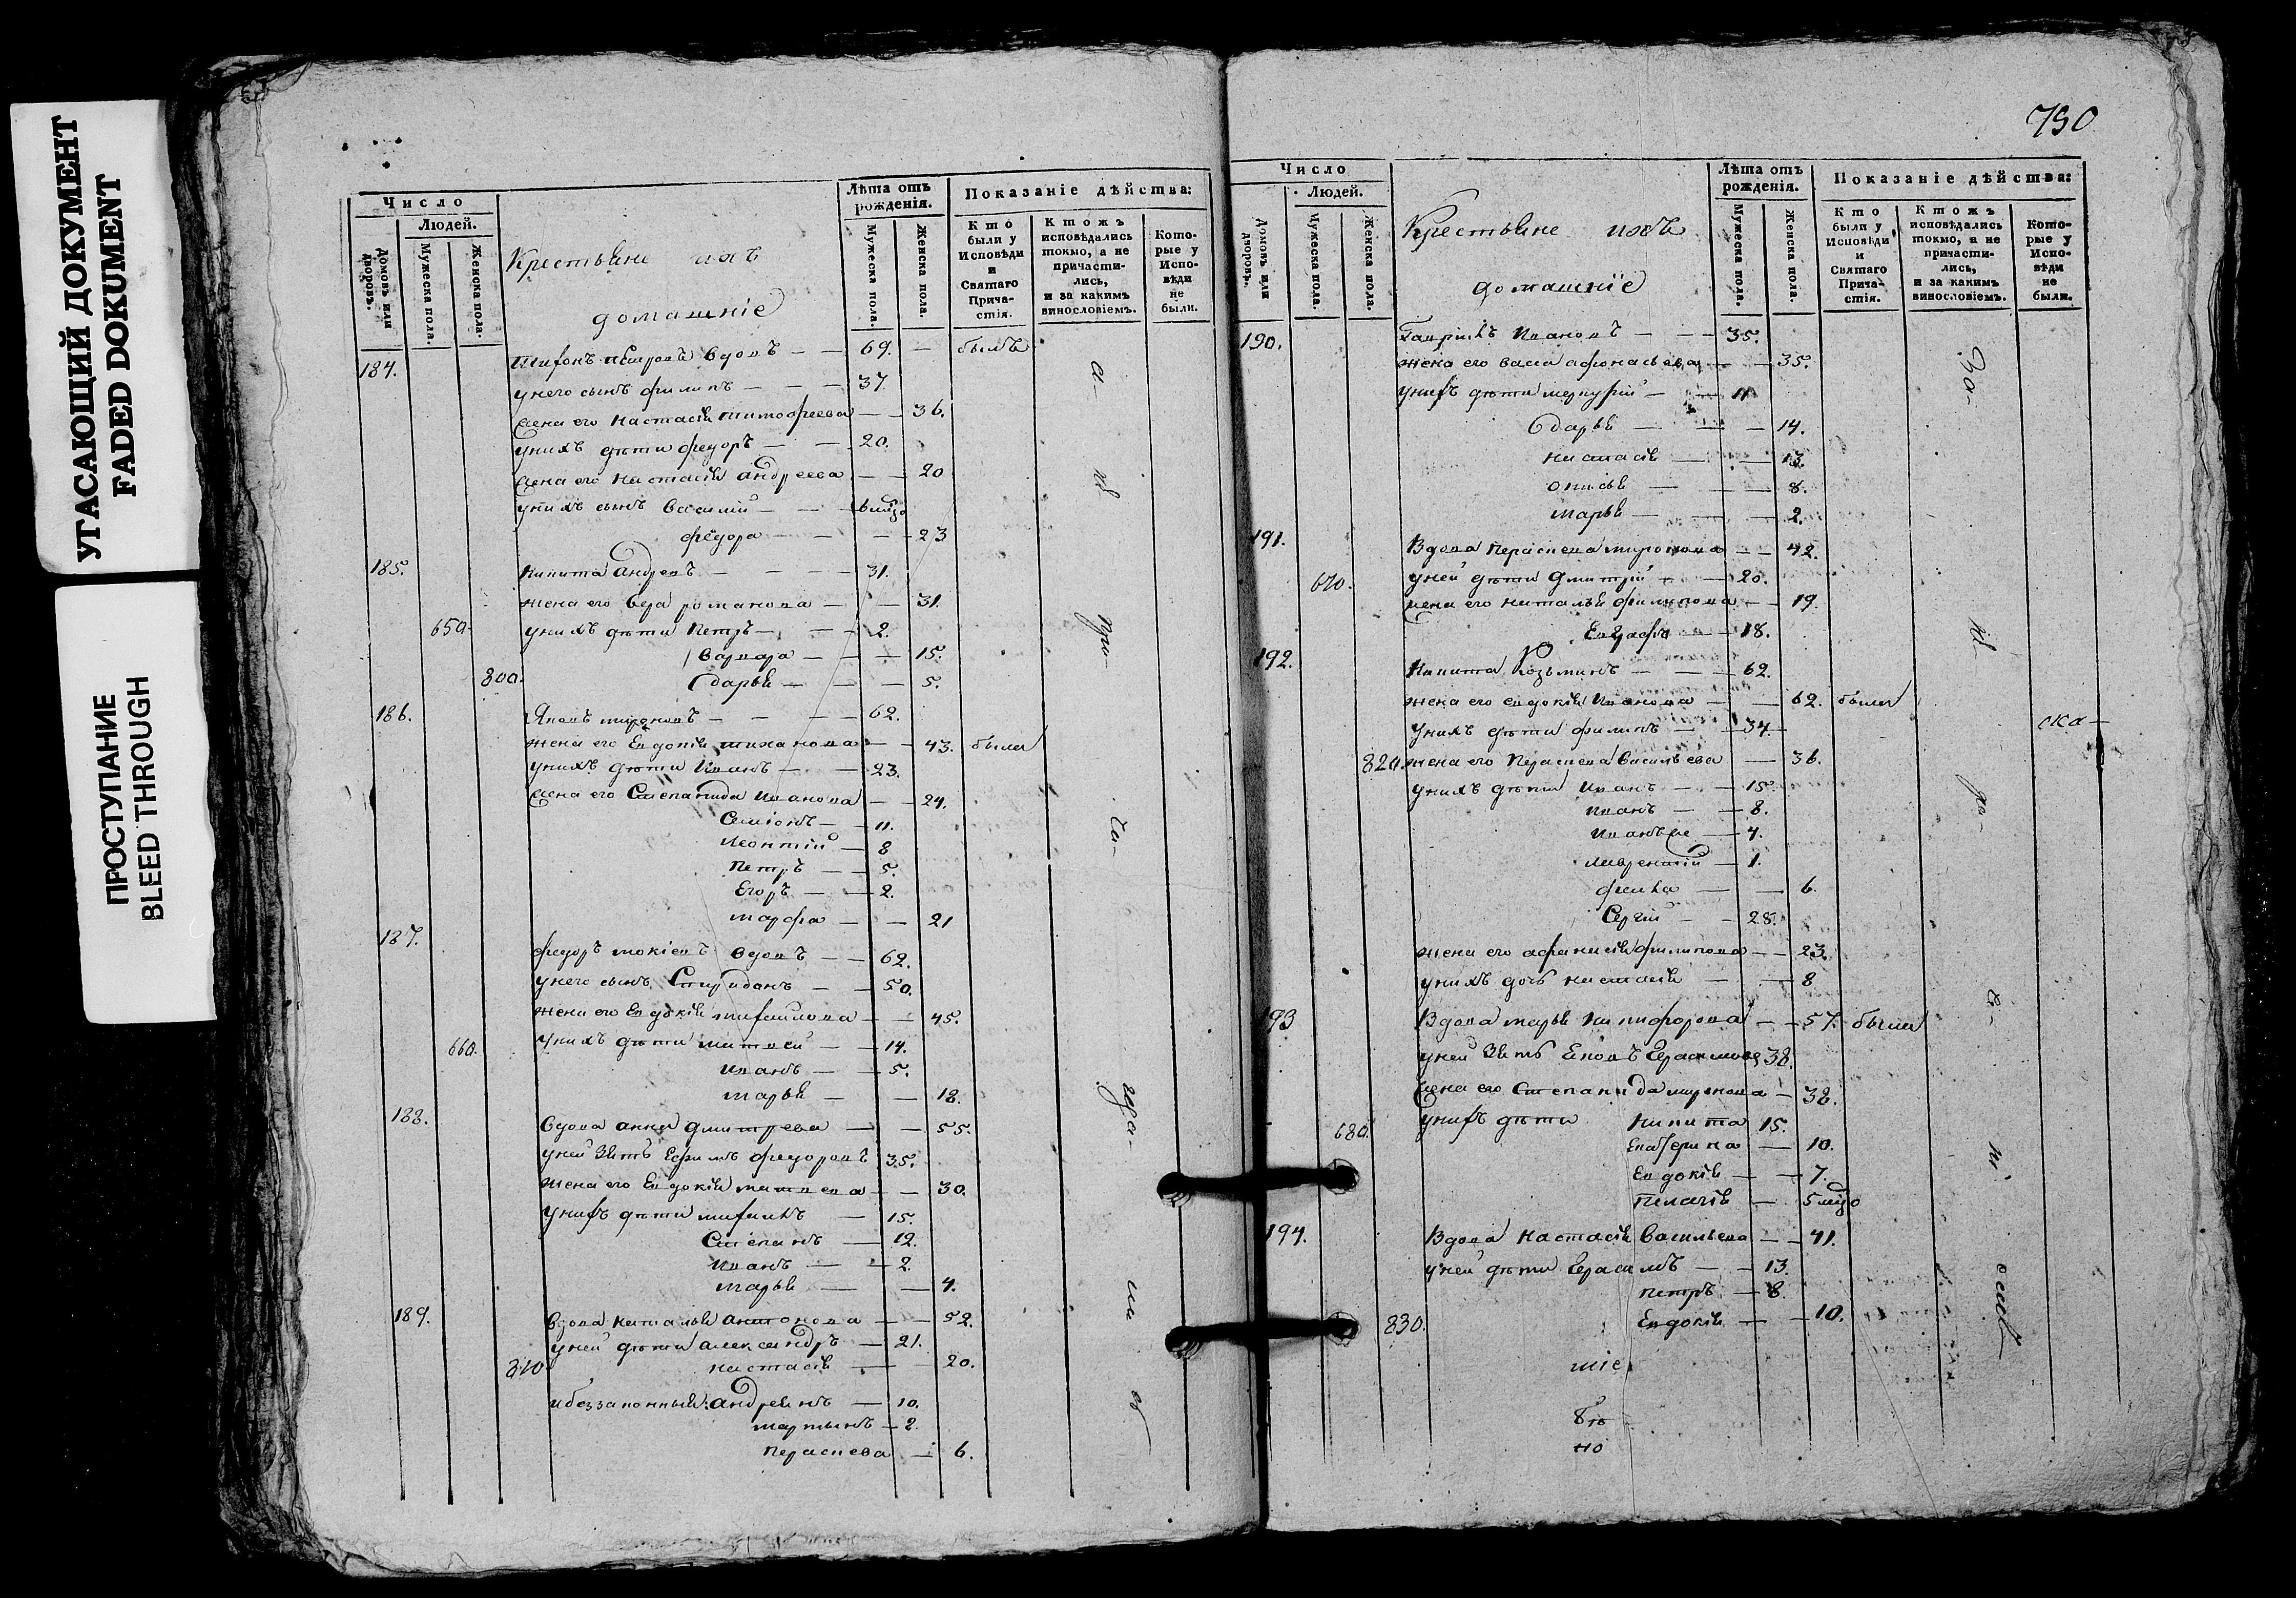 УГАСАЮЩИЙ ДОКУМЕНТ
FADED DOKUMENT
ПРОСТУПАНИЕ
BLEED THROUGH
Число
Людей.
Домовъ или дворовъ.
Мужеска пола.
Женска пола.
Крестьяне ихъ
домашніе
Лѣта отъ рожденія.
Мужеска пола.
Женска пола.
Показаніе дѣйства:
Кто были у Исповѣди и Святаго Причастія.
Ктожъ исповѣдались токмо, а не причастились, и за какимъ винословіемъ.
Которые у Исповѣди не были.
184. Тифонъ Петровъ вдовъ — — 69. — былъ
у него сынъ филипъ — — — 37.
жена его Настасія тимофеева — — 36.
у нихъ дѣти федоръ — — 20.
жена его Настасія андреева — — 20
у нихъ сынъ Василій — —
федора — — — 23
185. Никита Андреевъ — — — 31.
жена его Вера романова — — 31.
650. у нихъ дѣти Петръ — — 2.
Варвара — — — 15.
800. дарья — — — 5.
186. Яковъ мироновъ — — — 62.
жена его Евдокія тиханова — — 43. были
у нихъ дѣти Иванъ — — 23.
жена его Степанида Иванова — — 24.
Семіонъ — — 11.
Леонтій — 8
Петръ — — 5.
Егоръ — — 2.
марфа — — 21
187. федоръ мокіевъ вдовъ — — 62.
у него сынъ Спиридонъ — — 50.
жена его Евдокія михаилова — — 45.
660. у нихъ дѣти матвей — — 14.
Иванъ — — 5.
марья — — 18.
188. вдова анна дмитрева — — 55.
у ней зять Ефимъ федоровъ 35.
жена его Евдокія матвева — — 30.
у нихъ дѣти михаилъ — 15.
Степанъ — 12.
Иванъ — — 2.
марья — — 4.
189. вдова наталья антонова — — 52.
у ней дѣти александръ — 21.
810 настасія — 20.
и беззаконный: андреянъ — 10.
мартынъ — 2.
Пераскева — 6.
а-
при-
ча-
750
Число
Людей.
Домовъ или дворовъ.
Мужеска пола.
Женска пола.
Крестьяне ихъ
домашніе
Лѣта отъ рожденія.
Мужеска пола.
Женска пола.
Показаніе дѣйства:
Кто были у Исповѣди и Святаго Причастія.
Ктожъ исповѣдались токмо, а не причастились, и за какимъ винословіемъ.
Которые у Исповѣди не были.
190. Гаврилъ Ивановъ — — 35.
жена его васа афонасьева — — 35.
у нихъ дѣти меркурій — — 11
дарья — — — 14.
настасія — — 13.
— — 8.
марья — — 2.
191. Вдова Пераскева миронова — — 42.
670. у ней дѣти дмитрій — — 20.
жена его наталья филипова — — 19.
Евграфъ — — 18.
192. Никита Козьминъ — — 62.
жена его евдокія Иванова — — 62. были
у нихъ дѣти филипъ — — 34.
820. жена его Пераскева Васильева — 36.
у нихъ дѣти Иванъ — — 15.
Иванъ — — 8.
Иванъ же — 4.
лаврентій — 1.
фекла — — 6.
Сергій — — 28.
жена его афанасія филипова — — 23.
у нихъ дочь настасія — — 8
193 Вдова марья никифорова — — 57. были
у ней зять Яковъ Герасимовъ 38.
жена его степанида миронова — 38.
680. у нихъ дѣти Никита 15.
Екатерина — 10.
Евдокія — — 7.
Пелагія — 5
194. Вдова Настасія Васильева — — 41.
у ней дѣти Герасимъ — — 13.
петръ — 8.
830. Евдокія — — 10.
За-
ска-